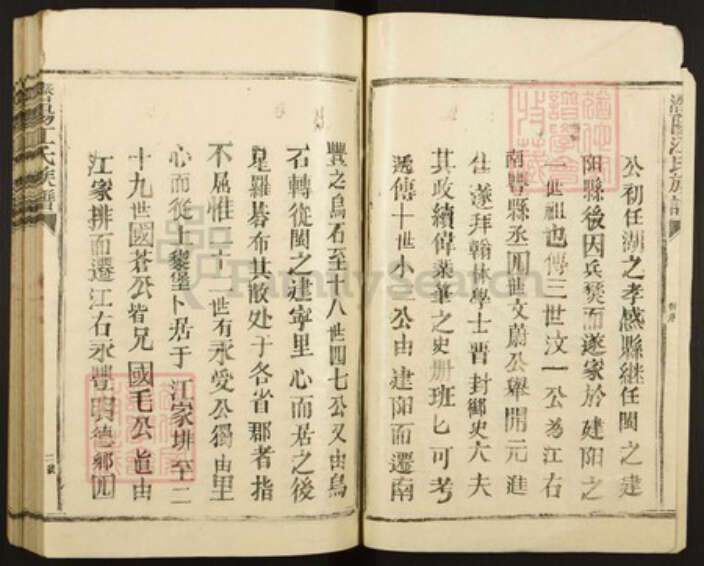 公初任湖之孝感縣繼任閩之建
陽縣後因兵燹而遂家於建陽之
一世祖也傳三世汶一公為江右
南豐縣丞四世文蔚公舉開元進
仕遂拜翰林學士晋封御史大夫
其政績偉業筆之史册班匕可考
遞傳十世小一公由建陽而遷南
豐之烏石至十八世四七公又由烏
石轉從閩之建寧里心而居之後
星羅碁布其散处于各省郡者指
不屈惟二十二世有永愛公獨由里
心而從上黎堡卜居于江家排至二
十九世國蒼公皆兄國毛公啚由
江家排而遷江右永豐明德鄉四
氏族譜
FamilySearch